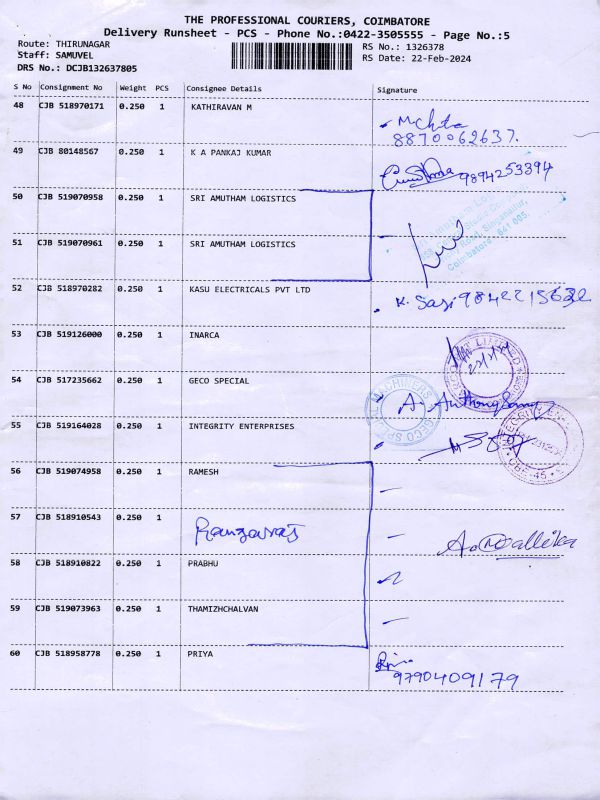 THE PROFESSIONAL COURIERS, COIMBATORE
Delivery Runsheet - PCS - Phone No.:0422-3505555 - Page No.:5
Route: THIRUNAGAR
Staff: SAMUVEL
DRS No.: DCJB132637805
RS No.: 1326378
RS Date: 22-Feb-2024
S No Consignment No Weight PCS Consignee Details Signature
48 CJB 518970171 0.250 1 KATHIRAVAN M
8870062637.
49 CJB 80148567 0.250 1 K A PANKAJ KUMAR
9894253394
50 CJB 519070958 0.250 1 SRI AMUTHAM LOGISTICS
51 CJB 519070961 0.250 1 SRI AMUTHAM LOGISTICS
Coimbatore - 641 005.
52 CJB 518970282 0.250 1 KASU ELECTRICALS PVT LTD
K. Sasi
53 CJB 519126000 0.250 1 INARCA
54 CJB 517235662 0.250 1 GECO SPECIAL
GECO SPECIAL MACHINERS
55 CJB 519164028 0.250 1 INTEGRITY ENTERPRISES
CBE-45
56 CJB 519074958 0.250 1 RAMESH
57 CJB 518910543 0.250 1 Rangaraj
A. Mallika
58 CJB 518910822 0.250 1 PRABHU
59 CJB 519073963 0.250 1 THAMIZHCHALVAN
60 CJB 518958778 0.250 1 PRIYA
9790409179